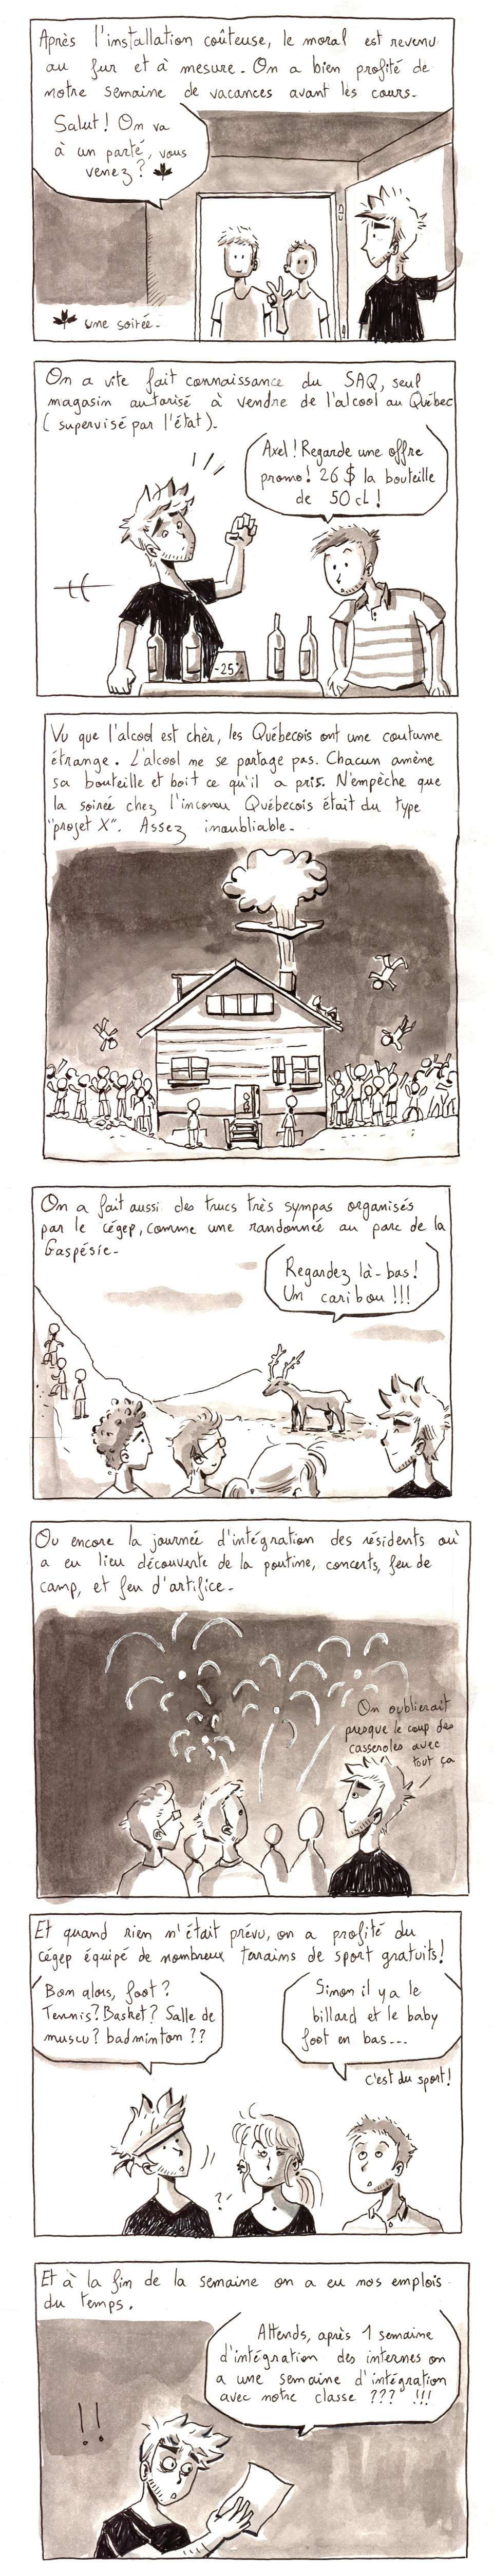 Après l'installation coûteuse, le moral est revenu
au fur et à mesure. On a bien profité de
notre semaine de vacances avant les cours.
Salut! On va
à un parté, vous
venez?
une soirée.
On a vite fait connaissance du SAQ, seul
magasin autorisé à vendre de l'alcool au Québec
(supervisé par l'état).
Axel! Regarde une offre
promo! 26 $ la bouteille
de 50 cL!
-25%
Vu que l'alcool est chèr, les Québecois ont une coutume
étrange. L'alcool ne se partage pas. Chacun amène
sa bouteille et boit ce qu'il a pris. N'empêche que
la soirée chez l'inconnu Québecois était du type
"projet X". Assez inoubliable.
On a fait aussi des trucs très sympas organisés
par le cégep, comme une randonnée au parc de la
Gaspésie.
Regardez là-bas!
Un caribou!!!
Ou encore la journée d'intégration des résidents où
a eu lieu découverte de la poutine, concerts, feu de
camp, et feu d'artifice.
On oublierait
presque le coup des
casseroles avec
tout ça
Et quand rien n'était prévu, on a profité du
cégep équipé de nombreux terrains de sport gratuits!
Bon alors, foot?
Tennis? Basket? Salle de
muscu? badminton??
Sinon il y a le
billard et le baby
foot en bas...
c'est du sport!
?
Et à la fin de la semaine on a eu nos emplois
du temps.
Attends, après 1 semaine
d'intégration des internes on
a une semaine d'intégration
avec notre classe ??? !!!
!!